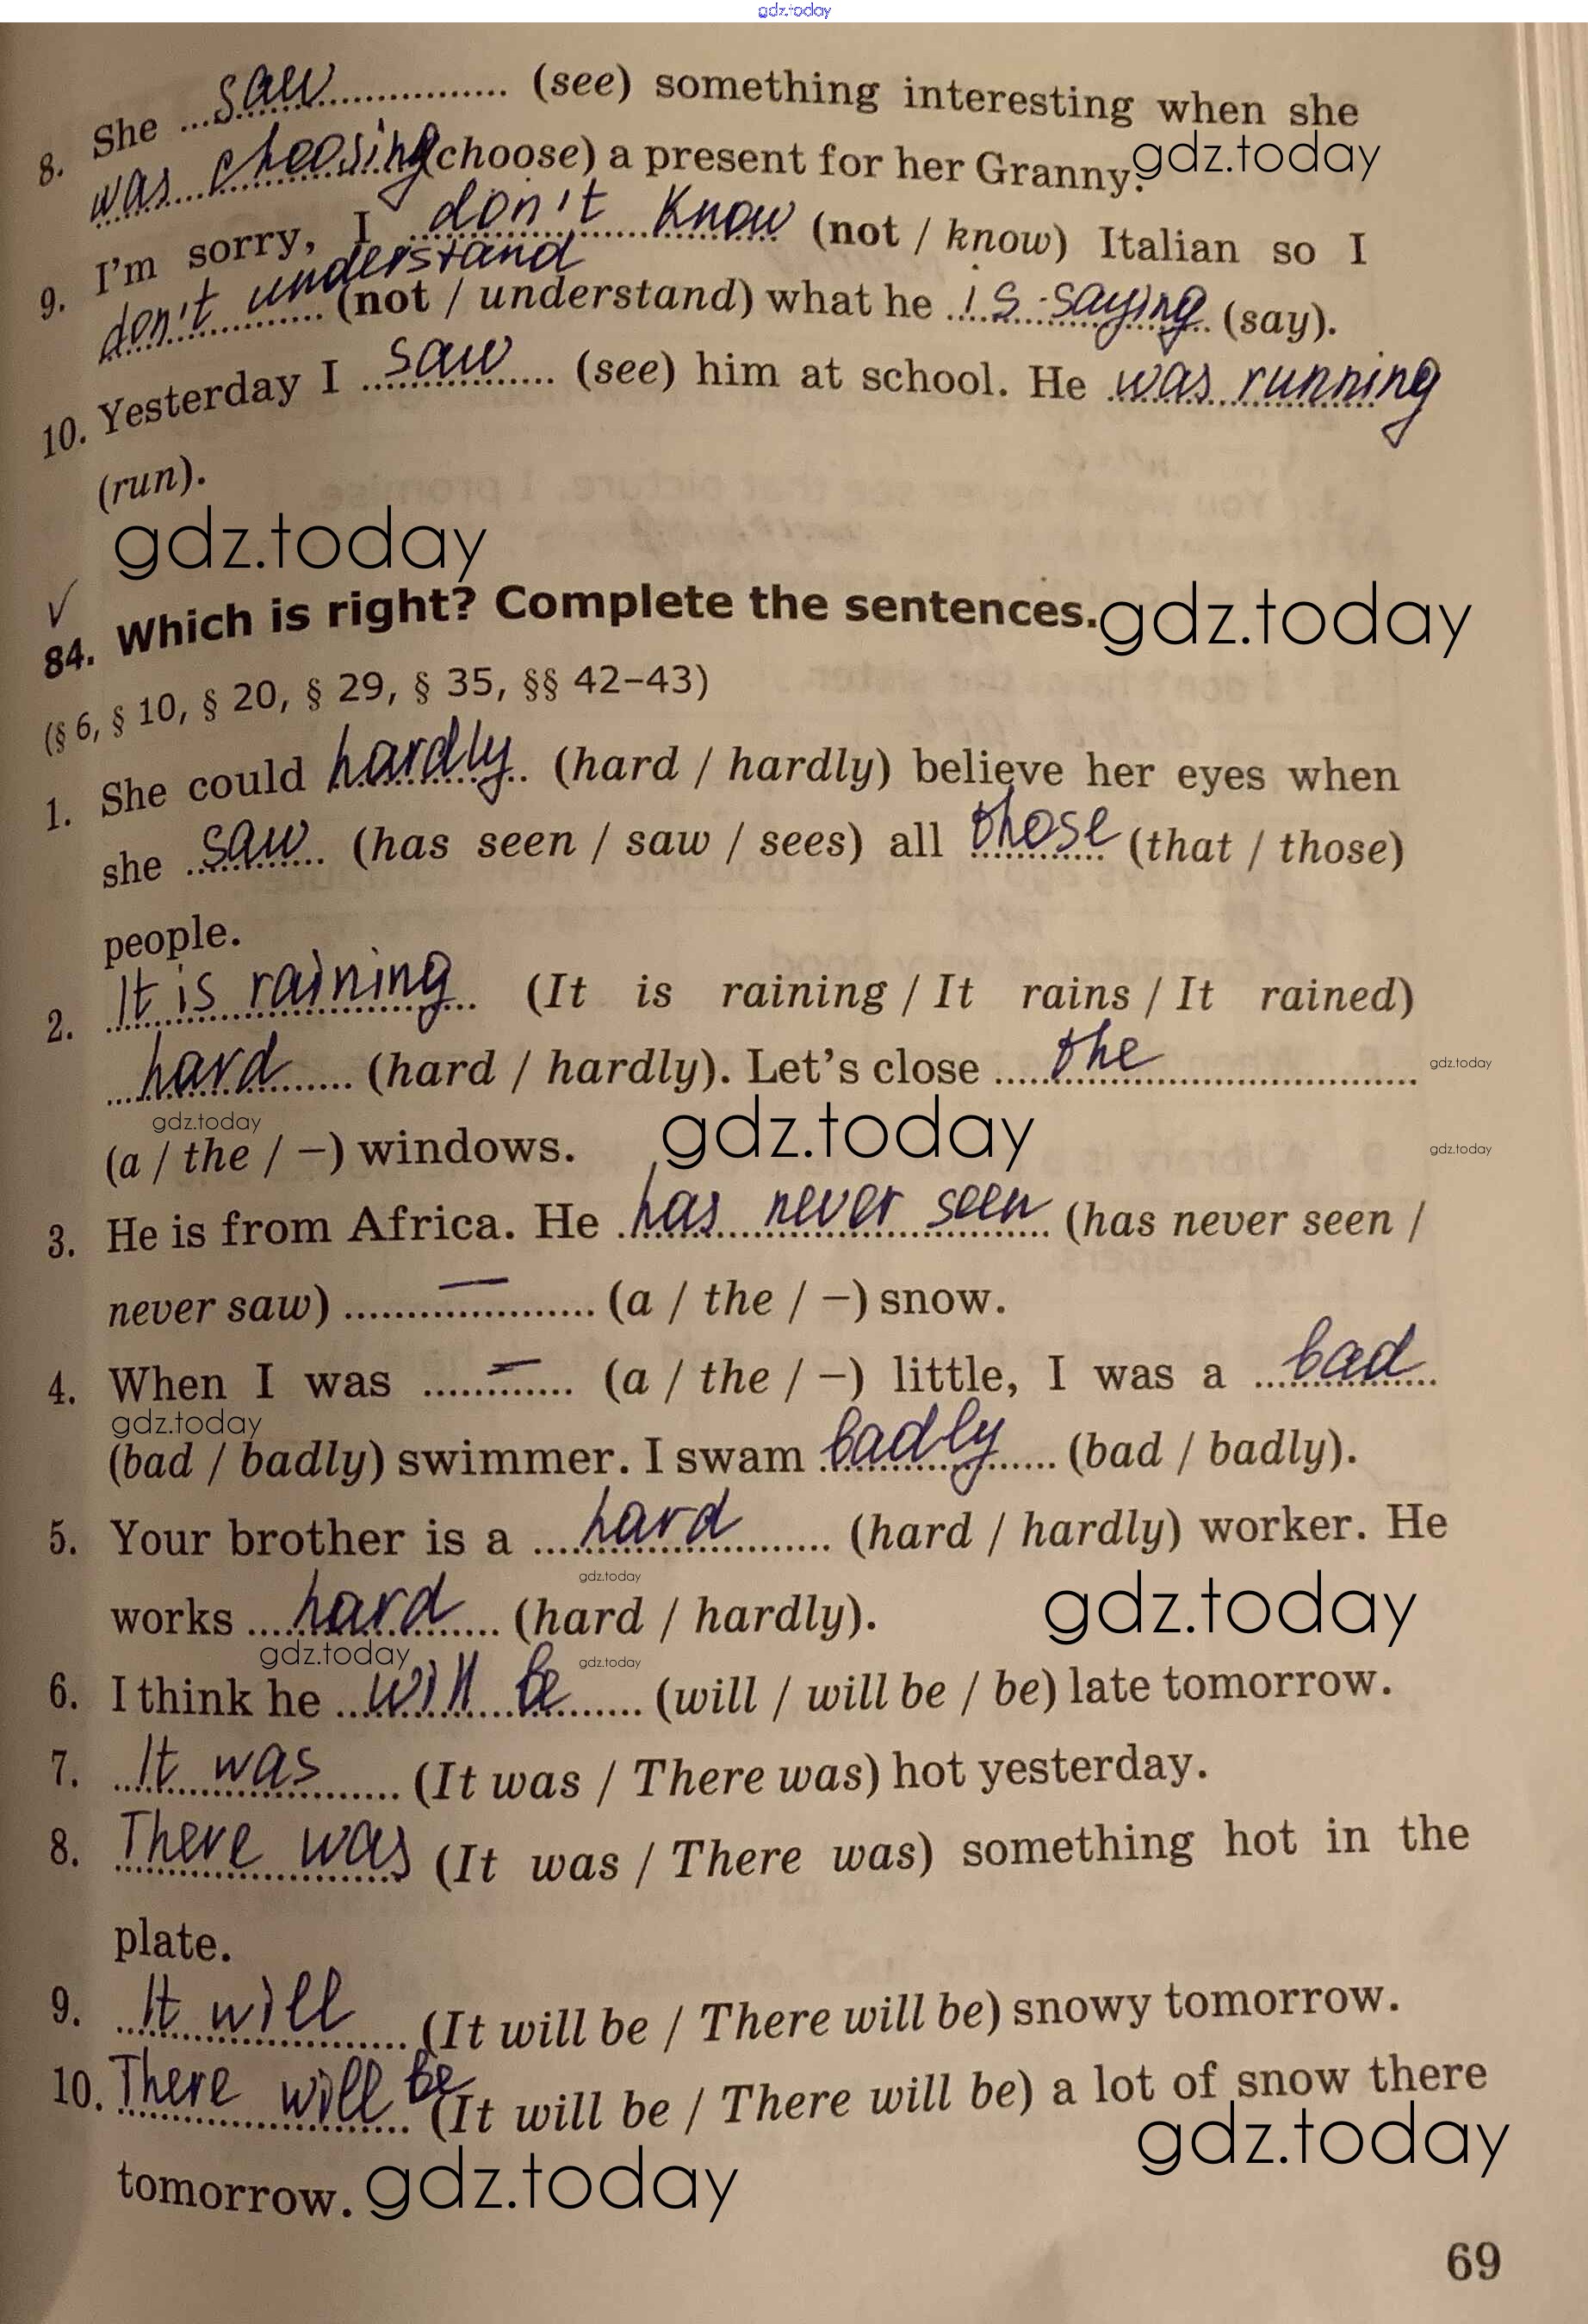 gdz.today
8. She ...saw... (see) something interesting when she
was choosing (choose) a present for her Granny. gdz.today
9. I'm sorry, I don't know (not / know) Italian so I
don't understand (not / understand) what he is saying (say).
10. Yesterday I saw (see) him at school. He was running
(run).
gdz.today
84. Which is right? Complete the sentences. gdz.today
(§ 6, § 10, § 20, § 29, § 35, §§ 42–43)
1. She could hardly (hard / hardly) believe her eyes when
she saw (has seen / saw / sees) all those (that / those)
people.
2. It is raining (It is raining / It rains / It rained)
hard (hard / hardly). Let's close the gdz.today
gdz.today
(a / the / –) windows. gdz.today gdz.today
3. He is from Africa. He has never seen (has never seen /
never saw) — (a / the / –) snow.
4. When I was — (a / the / –) little, I was a bad
gdz.today
(bad / badly) swimmer. I swam badly (bad / badly).
5. Your brother is a hard (hard / hardly) worker. He
gdz.today
works hard (hard / hardly). gdz.today
gdz.today gdz.today
6. I think he will be (will / will be / be) late tomorrow.
7. It was (It was / There was) hot yesterday.
8. There was (It was / There was) something hot in the
plate.
9. It will (It will be / There will be) snowy tomorrow.
10. There will be (It will be / There will be) a lot of snow there
gdz.today
tomorrow. gdz.today
69